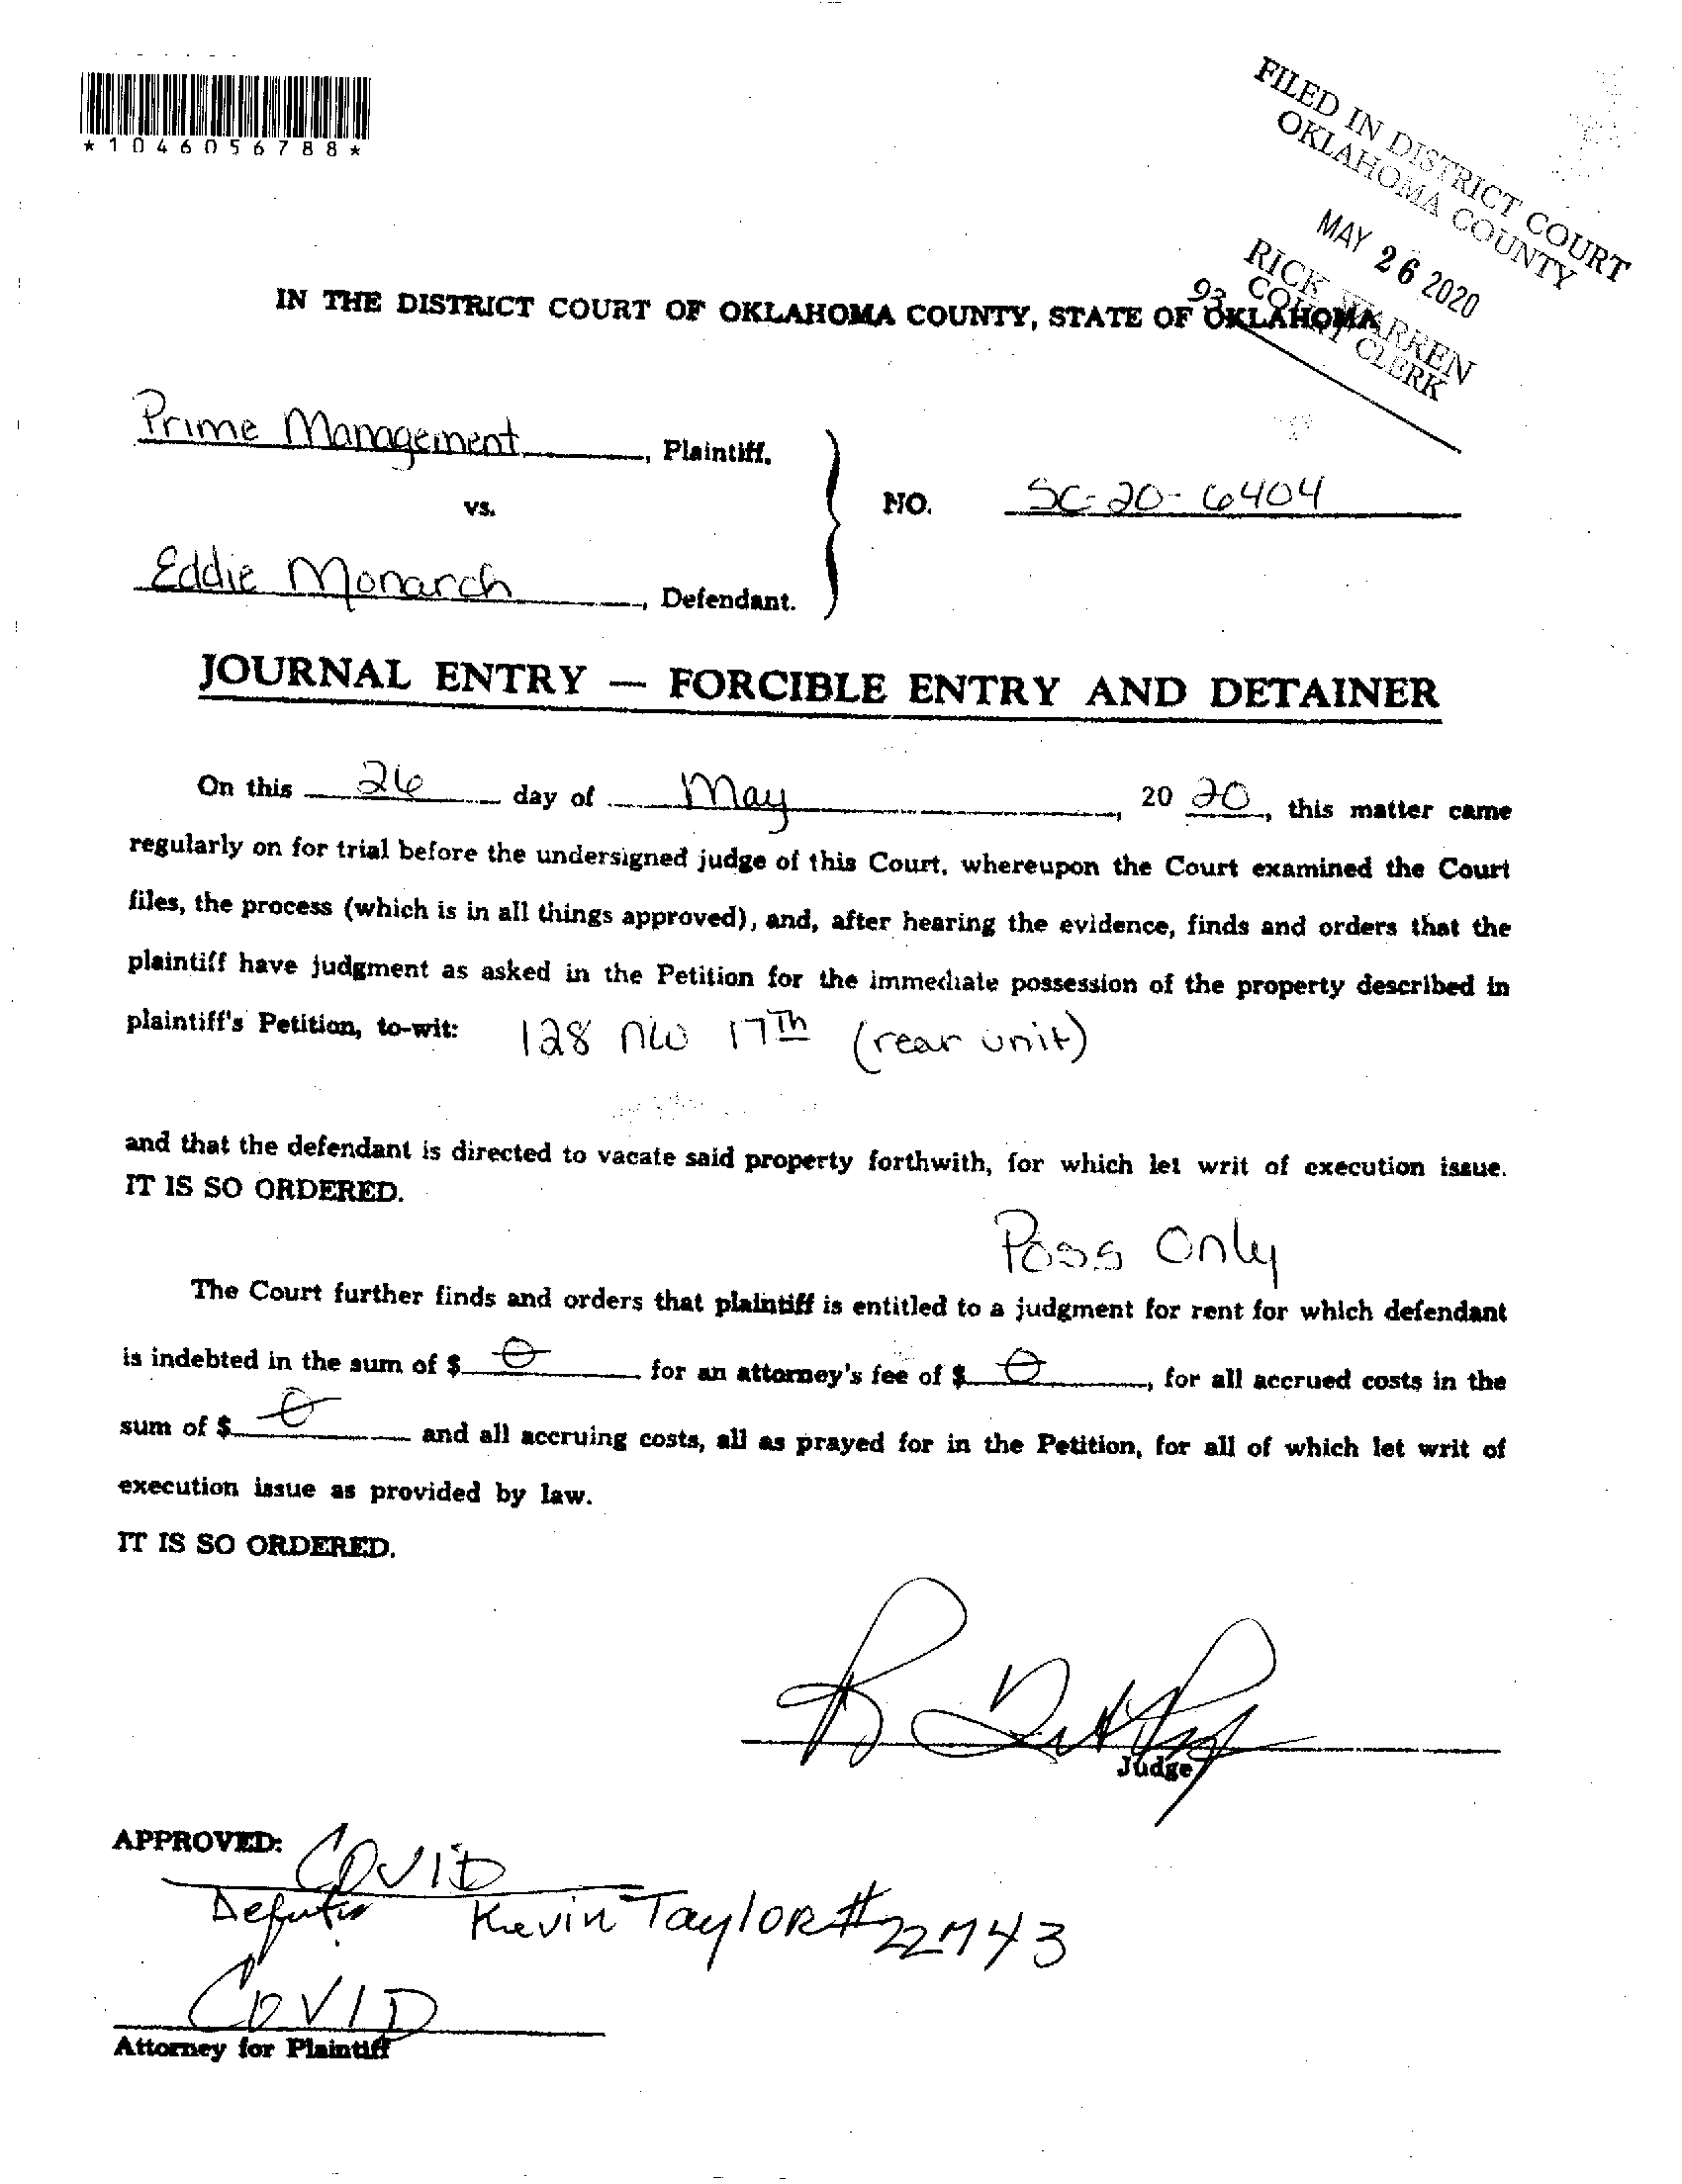 *1046056788*
FILED IN DISTRICT COURT
OKLAHOMA COUNTY
MAY 26 2020
RICK WARREN
COURT CLERK
93
IN THE DISTRICT COURT OF OKLAHOMA COUNTY, STATE OF OKLAHOMA
Prime Management, Plaintiff,
vs.
NO. SC-20-6404
Eddie Monarch, Defendant.
JOURNAL ENTRY — FORCIBLE ENTRY AND DETAINER
On this 26 day of May, 20 20, this matter came
regularly on for trial before the undersigned judge of this Court, whereupon the Court examined the Court
files, the process (which is in all things approved), and, after hearing the evidence, finds and orders that the
plaintiff have judgment as asked in the Petition for the immediate possession of the property described in
plaintiff's Petition, to-wit: 128 NW 17Th (rear unit)
and that the defendant is directed to vacate said property forthwith, for which let writ of execution issue.
IT IS SO ORDERED.
Poss Only
The Court further finds and orders that plaintiff is entitled to a judgment for rent for which defendant
is indebted in the sum of $ 0 for an attorney's fee of $ 0, for all accrued costs in the
sum of $ 0 and all accruing costs, all as prayed for in the Petition, for all of which let writ of
execution issue as provided by law.
IT IS SO ORDERED.
Judge
APPROVED: COVID
Kevin Taylor #22743
COVID
Attorney for Plaintiff